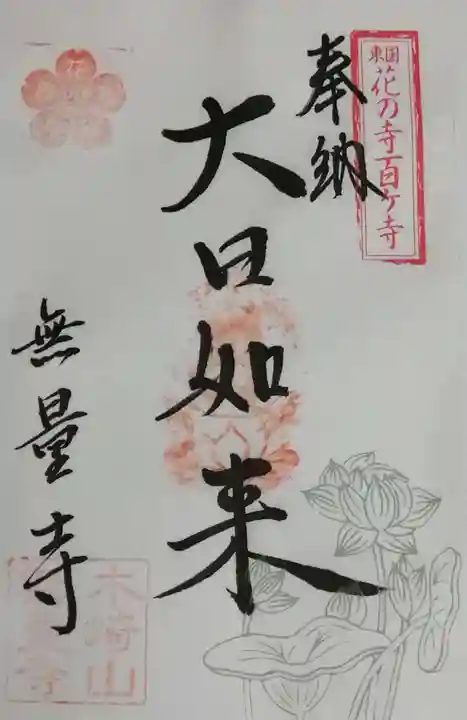 東国
花の寺百ケ寺
奉納
大日如来
無量寺
木崎山
無量寺